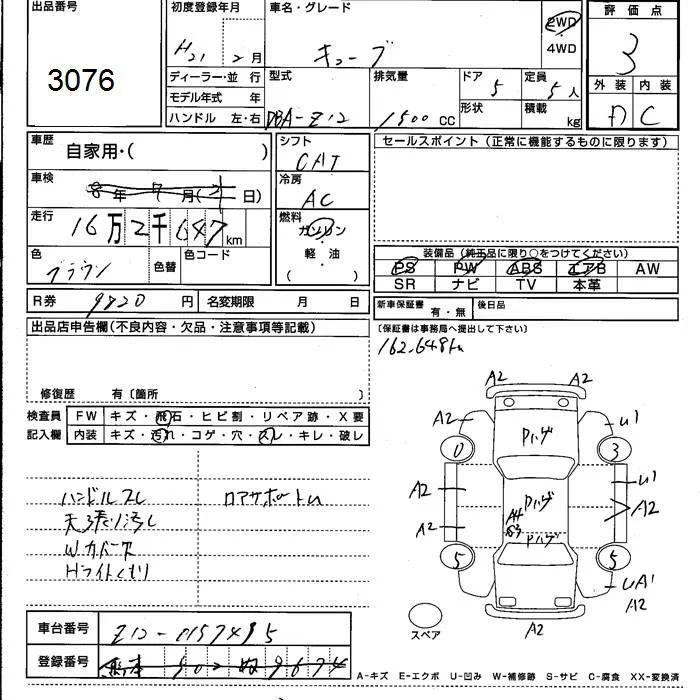 出品番号
3076
初度登録年月
H21 2月
車名・グレード
キューブ
2WD
4WD
評価点
3
外装 内装
D C
ディーラー・並行
モデル年式 年
ハンドル 左・右
型式
DBA-Z12
排気量
1500CC
ドア
5
定員
5人
形状
積載
kg
車歴
自家用・( )
車検
8年 7月( 日)
走行
16万2千647km
色
ブラウン
色替
色コード
シフト
CAT
冷房
AC
燃料
ガソリン
・
軽油
( )
セールスポイント(正常に機能するものに限ります)
装備品(純正品に限り○をつけてください)
PS PW ABS エアB AW
SR ナビ TV 本革
R券 9820円
名変期限 月 日
新車保証書
有・無
後日品
(保証書は事務局へ提出して下さい)
162,648km
出品店申告欄(不良内容・欠品・注意事項等記載)
修復歴 有〔箇所 〕
検査員
記入欄
FW キズ・飛石・ヒビ割・リペア跡・X要
内装 キズ・汚れ・コゲ・穴・スレ・キレ・破レ
ハンドルスレ
天張り汚し
Wカバー欠
Hライトくもり
ロアサポートU
A2 A2
A2 U1
Pハゲ
0 3
A2 U1
Pハゲ
A4
A2
A2 Pハゲ
5 5
UA1
A2
A2
スペア
車台番号 Z12-0157495
登録番号 熊本 902 ぬ 9674
A-キズ E-エクボ U-凹み W-補修跡 S-サビ C-腐食 XX-変換済